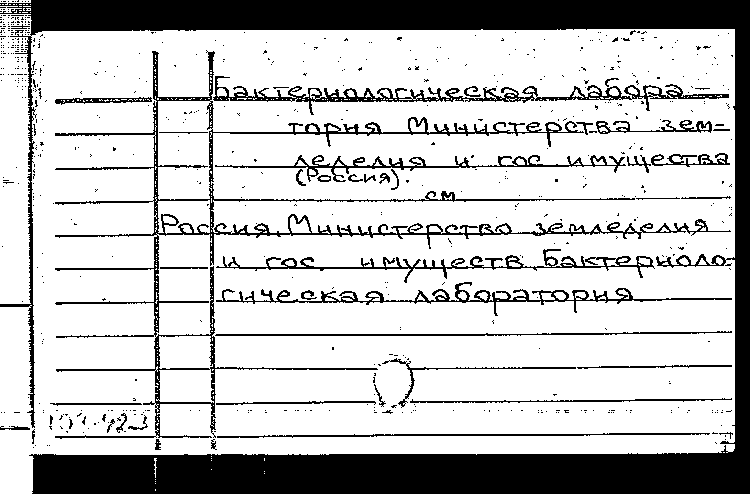 Бактериологическая лабора-
тория Министерства зем-
леделия и гос имущества
(Россия).
см
Россия. Министерство земледелия
и гос. имуществ. Бактериоло-
гическая лаборатория